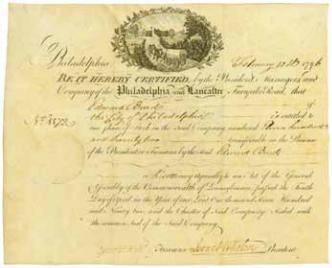 Philadelphia February 12th 1796
BE IT HEREBY CERTIFIED, by the President Managers and
Company of the Philadelphia and Lancaster Turnpike Road, that
Edward Burd of
the City of Philadelphia is entitled to
one share of Stock in the said Company numbered
and seventy two transferable in the Presence
of the President or Treasurer by the said Edward Burd
Testimony Agreeably to an Act of the General
Assembly of the Commonwealth of Pennsylvania passed the Ninth
Day of April in the Year of our Lord One thousand Seven Hundred
and Ninety two and the Charter of said Company Sealed with
the common Seal of the said Company
Treasurer President